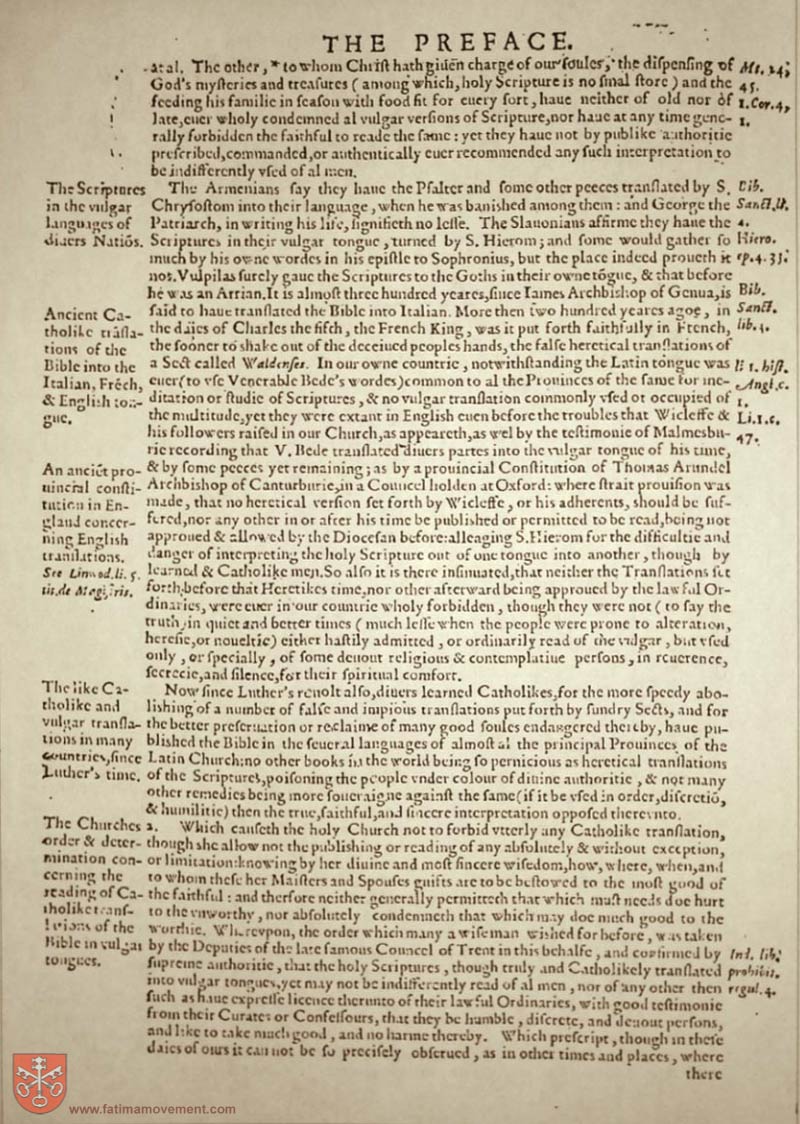 THE PREFACE.
at al. The other, * to whom Christ hath giuen charge of our soules, the dispensing of
God's mysteries and treasures (among which, holy Scripture is no smal store) and the
feeding his familie in season with food fit for euery sort, haue neither of old nor of
late, euer wholy condemned al vulgar versions of Scripture, nor haue at any time gene-
rally forbidden the faithful to reade the same: yet they haue not by publike authoritie
prescribed, commanded, or authentically euer recommended any such interpretation to
be indifferently vsed of al men.
Mt. 24,
45.
1. Cor. 4,
1.
The Scriptures
in the vulgar
languages of
diuers Natiōs.
The Armenians say they haue the Psalter and some other peeces translated by S.
Chrysostom into their language, when he was banished among them: and George the
Patriarch, in writing his life, signifieth no lesse. The Slauonians affirme they haue the
Scriptures in their vulgar tongue, turned by S. Hierom; and some would gather so
much by his owne wordes in his epistle to Sophronius, but the place indeed proueth it
not. Vulpilas surely gaue the Scriptures to the Goths in their owne tōgue, & that before
he was an Arrian. It is almost three hundred yeares, since Iames Archbishop of Genua, is
said to haue translated the Bible into Italian. More then two hundred yeares agoe, in
the daies of Charles the fifth, the French King, was it put forth faithfully in French,
the sooner to shake out of the deceiued peoples hands, the false heretical translations of
a Sect called Waldenses. In our owne countrie, notwithstanding the Latin tongue was
euer (to vse Venerable Bede's wordes) common to al the Prouinces of the same for me-
ditation or studie of Scriptures, & no vulgar translation commonly vsed ot occupied of
the multitude, yet they were extant in English euen before the troubles that Wicleffe &
his followers raised in our Church, as appeareth, as wel by the testimonie of Malmesbu-
rie recording that V. Bede translated diuers partes into the vulgar tongue of his time,
& by some peeces yet remaining; as by a prouincial Constitution of Thomas Arundel
Archbishop of Canturburie, in a Councel holden at Oxford: where strait prouision was
made, that no heretical version set forth by Wicleffe, or his adherents, should be suf-
fered, nor any other in or after his time be published or permitted to be read, being not
approued & allowed by the Diocesan before: alleaging S. Hierom for the difficultie and
danger of interpreting the holy Scripture out of one tongue into another, though by
learned & Catholike men. So also it is there insinuated, that neither the Translations set
forth before that Heretikes time, nor other afterward being approued by the lawful Or-
dinaries, were euer in our countrie wholy forbidden, though they were not (to say the
truth, in quiet and better times (much lesse when the people were prone to alteration,
heresie, or noueltie) either hastily admitted, or ordinarily read of the vulgar, but vsed
only, or specially, of some deuout religious & contemplatiue persons, in reuerence,
secrecie, and silence, for their spiritual comfort.
Bib.
Sanct. li.
4.
Hiero.
ep.
Bib.
Sanct.
lib. 4.
li 1. hist.
Angl. c.
1.
Li.1.c.
47.
Ancient Ca-
tholike trāsla-
tions of the
Bible into the
Italian, Frēch,
& English ton-
gue.
An anciēt pro-
uincial consti-
tution in En-
gland concer-
ning English
translations.
See Linwod. li. 5.
tit. de Magistris.
The like Ca-
tholike and
vulgar transla-
tions in many
countries, since
Luther's time.
Now since Luther's reuolt also, diuers learned Catholikes, for the more speedy abo-
lishing of a number of false and impious translations put forth by sundry Sects, and for
the better preseruation or reclaime of many good soules endangered thereby, haue pu-
blished the Bible in the seueral languages of almost al the principal Prouinces of the
Latin Church: no other books in the world being so pernicious as heretical translations
of the Scriptures, poisoning the people vnder colour of diuine authoritie, & not many
other remedies being more soueraigne against the same (if it be vsed in order, discretiō,
& humilitie) then the true, faithful, and sincere interpretation opposed therevnto.
The Churches
order & deter-
mination con-
cerning the
reading of Ca-
tholike trans-
lations of the
Bible in vulgar
tongues.
2. Which causeth the holy Church not to forbid vtterly any Catholike translation,
though she allow not the publishing or reading of any absolutely & without exception,
or limitation: knowing by her diuine and most sincere wisedom, how, where, when, and
to whom these her Maisters and Spouses guifts are to be bestowed to the most good of
the faithful: and therfore neither generally permitteth that which must needs doe hurt
to the vnworthy, nor absolutely condemneth that which may doe much good to the
worthie. Wherevpon, the order which many a wise man wished for before, was taken
by the Deputies of the late famous Councel of Trent in this behalfe, and confirmed by
supreme authoritie, that the holy Scriptures, though truly and Catholikely translated
into vulgar tongues, yet may not be indifferently read of al men, nor of any other then
such as haue expresse licence therunto of their lawful Ordinaries, with good testimonie
from their Curates or Confessours, that they be humble, discrete, and deuout persons,
and like to take much good, and no harme thereby. Which prescript, though in these
daies of ours it can not be so precisely obserued, as in other times and places, where
there
Ind. lib.
prohibit.
regul. 4.
www.fatimamovement.com